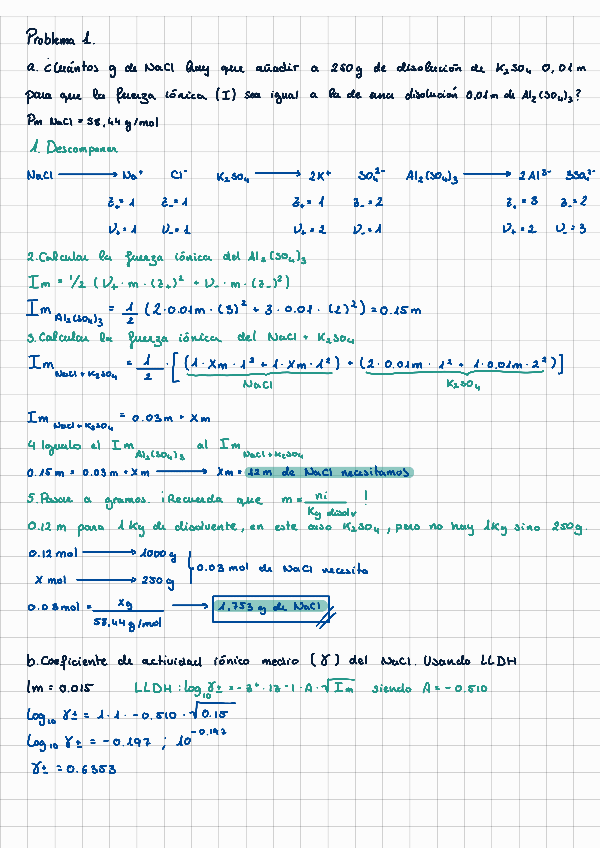 Problema 1.
a. ¿Cuántos g de NaCl hay que añadir a 250g de disolución de K₂SO₄ 0,01m
para que la fuerza iónica (I) sea igual a la de una disolución 0,01m de Al₂(SO₄)₃?
Pm NaCl = 58,44 g/mol
1. Descomponer
NaCl ⟶ Na⁺ Cl⁻ K₂SO₄ ⟶ 2K⁺ SO₄²⁻ Al₂(SO₄)₃ ⟶ 2Al³⁻ 3SO₄²⁻
z₊ = 1 z₋ = 1 z₊ = 1 z₋ = 2 z₊ = 3 z₋ = 2
ν₊ = 1 ν₋ = 1 ν₊ = 2 ν₋ = 1 ν₊ = 2 ν₋ = 3
2. Calcular la fuerza iónica del Al₂(SO₄)₃
Im = 1/2 (ν₊ · m · (z₊)² + ν₋ · m · (z₋)²)
Im Al₂(SO₄)₃ = 1/2 (2 · 0.01m · (3)² + 3 · 0.01 · (2)²) = 0.15m
3. Calcular la fuerza iónica del NaCl + K₂SO₄
Im NaCl + K₂SO₄ = 1/2 · [(1 · Xm · 1² + 1 · Xm · 1²) + (2 · 0.01m · 1² + 1 · 0.01m · 2²)]
NaCl K₂SO₄
Im NaCl + K₂SO₄ = 0.03m + Xm
4 Igualo el Im Al₂(SO₄)₃ al Im NaCl + K₂SO₄
0.15m = 0.03m + Xm ⟶ Xm = 12m de NaCl necesitamos
5. Pasar a gramos. ¡Recuerda que m = ni / Kg disolv !
0.12 m para 1Kg de disolvente, en este caso K₂SO₄, pero no hay 1Kg sino 250g.
0.12 mol ⟶ 1000 g
X mol ⟶ 250 g } 0.03 mol de NaCl necesito
0.03mol = Xg / 58,44 g/mol ⟶ 1,753 g de NaCl
b. Coeficiente de actividad iónico medio (γ) del NaCl. Usando LLDH
Im = 0.015 LLDH : log₁₀ γ± = -z⁺ · |z⁻| · A · √Im siendo A = -0.510
log₁₀ γ± = 1 · 1 · -0.510 · √0.15
log₁₀ γ± = -0.197 ; 10^-0.197
γ± = 0.6353